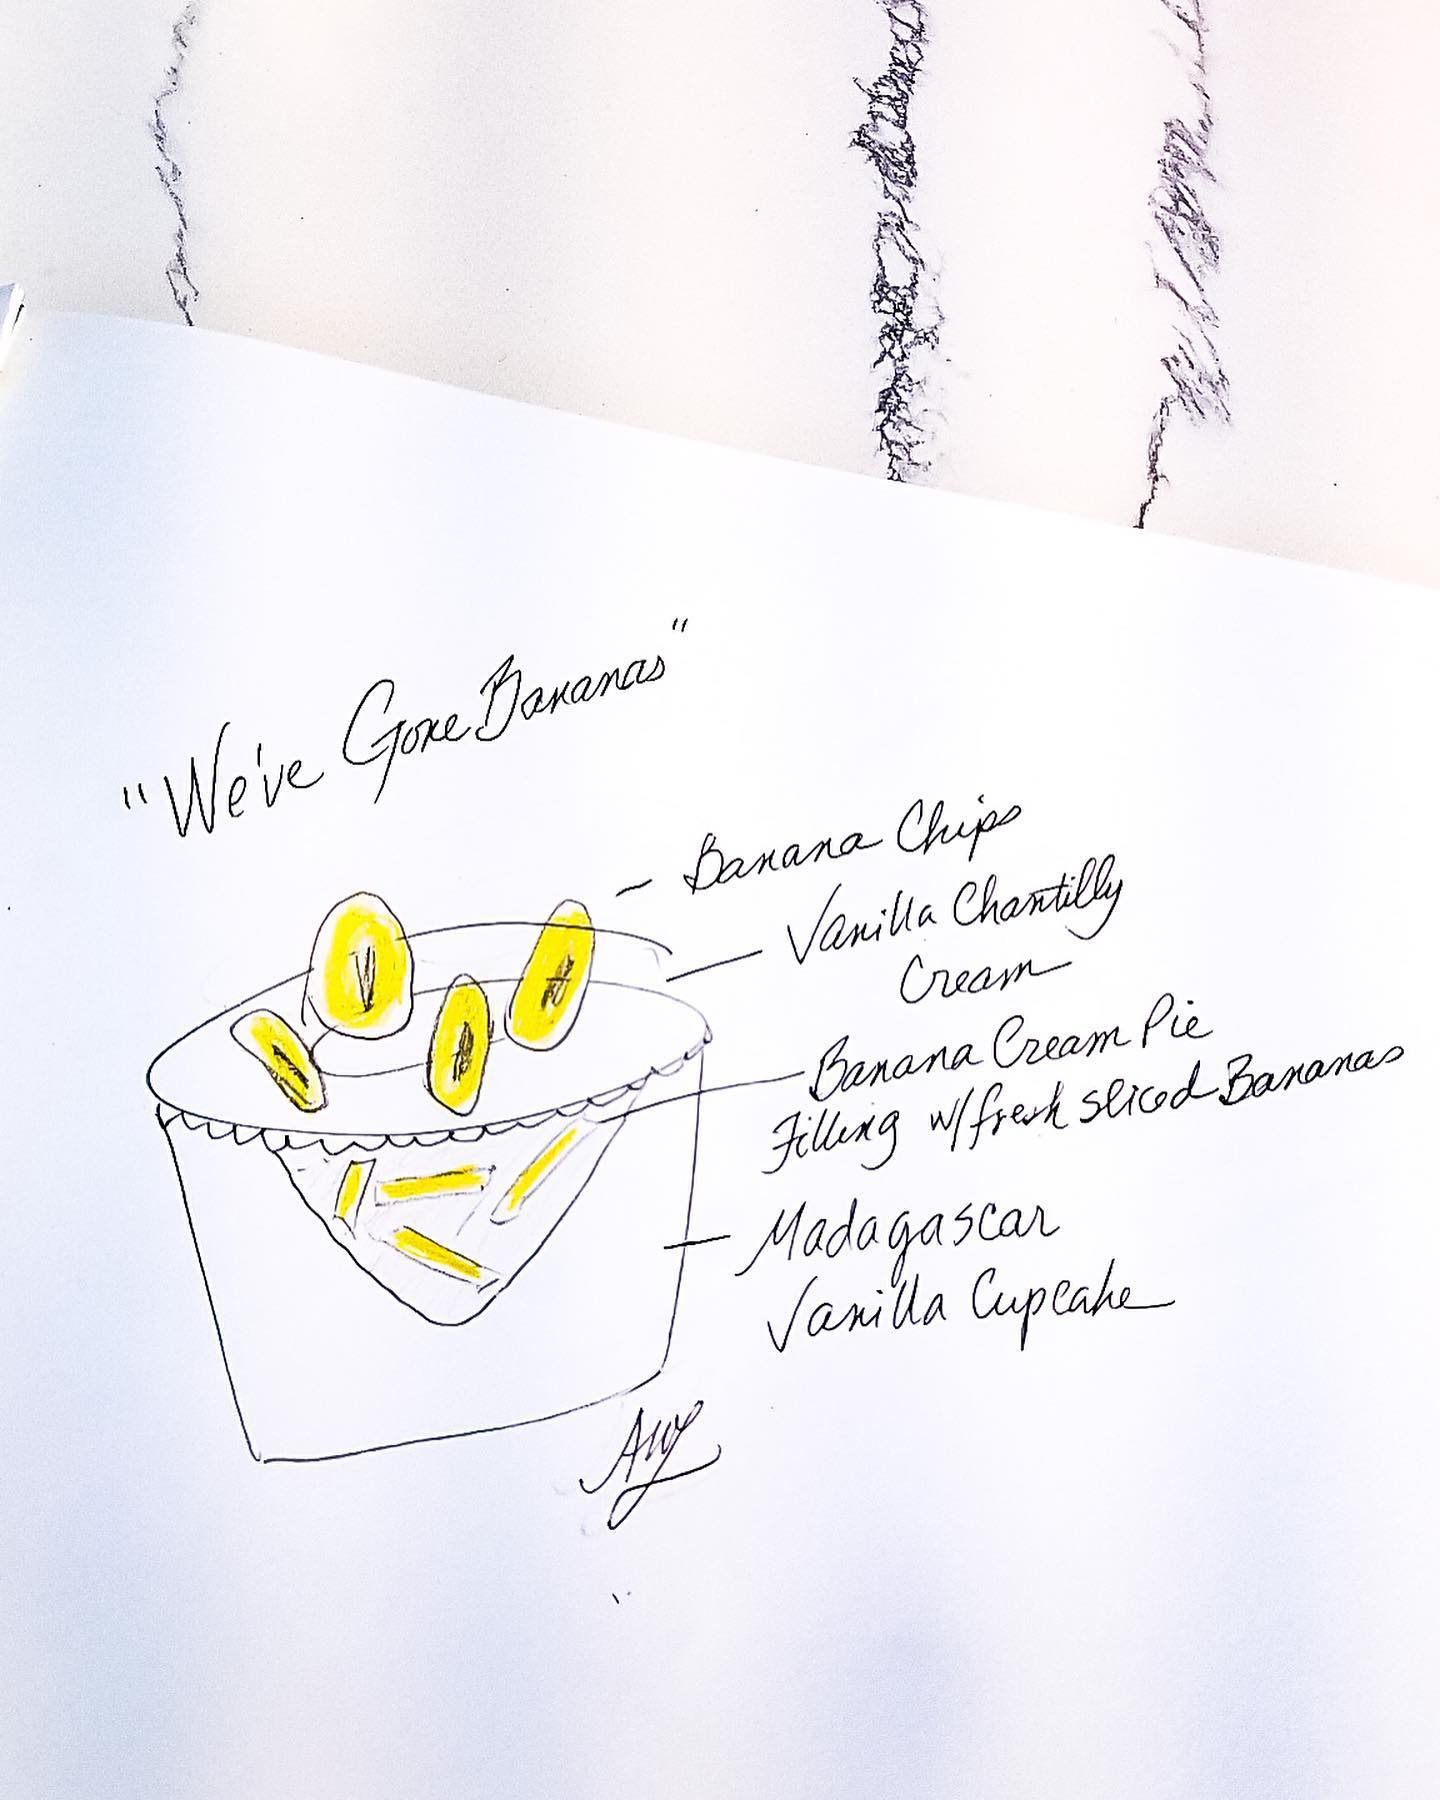 "We've Gone Bananas"
Banana Chips
Vanilla Chantilly
Cream
Banana Cream Pie
Filling w/ fresh sliced Bananas
Madagascar
Vanilla Cupcake